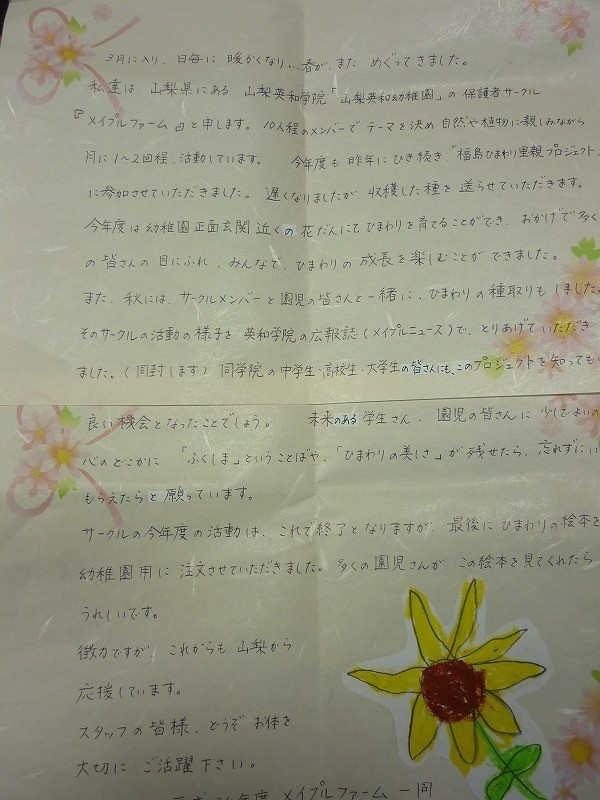 3月に入り、日毎に暖かくなり…春が、また めぐってきました。
私達は、山梨県にある 山梨英和学院「山梨英和幼稚園」の 保護者サークル
『メイプルファーム』と申します。10人程のメンバーで テーマを決め 自然や植物に親しみながら
月に1〜2回程、活動しています。 今年度も 昨年にひき続き「福島ひまわり里親プロジェクト」
に参加させていただきました。遅くなりましたが、収穫した種を 送らせていただきます。
今年度は幼稚園正面玄関近くの花だんにて、ひまわりを育てることができ、おかげで多く
の皆さんの目にふれ、みんなで、ひまわりの成長を楽しむことができました。
また、秋には、サークルメンバーと園児の皆さんと一緒に、ひまわりの種取りもしました。
そのサークルの活動の様子を 英和学院の広報誌(メイプルニュース)で、とりあげていただき
ました。(同封します) 同学院の中学生・高校生・大学生の皆さんにも、このプロジェクトを知っても
良い機会となったことでしょう。 未来のある学生さん、園児の皆さんに 少しでもよいの
心のどこかに 「ふくしま」ということばや、「ひまわりの美しさ」が残せたら、忘れずにい
もらえたらと願っています。
サークルの今年度の活動は、これで終了となりますが、最後にひまわりの絵本を
幼稚園用に注文させていただきました。多くの園児さんが この絵本を見てくれたら
うれしいです。
微力ですが、これからも 山梨から
応援しています。
スタッフの皆様、どうぞ お体を
大切に ご活躍下さい。
年度 メイプルファーム 一同